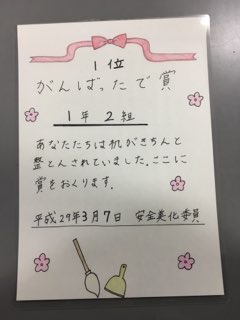 1位
がんばったで賞
1年 2組
あなたたちは机がきちんと
整とんされていました。ここに
賞をおくります。
平成29年3月7日 安全美化委員